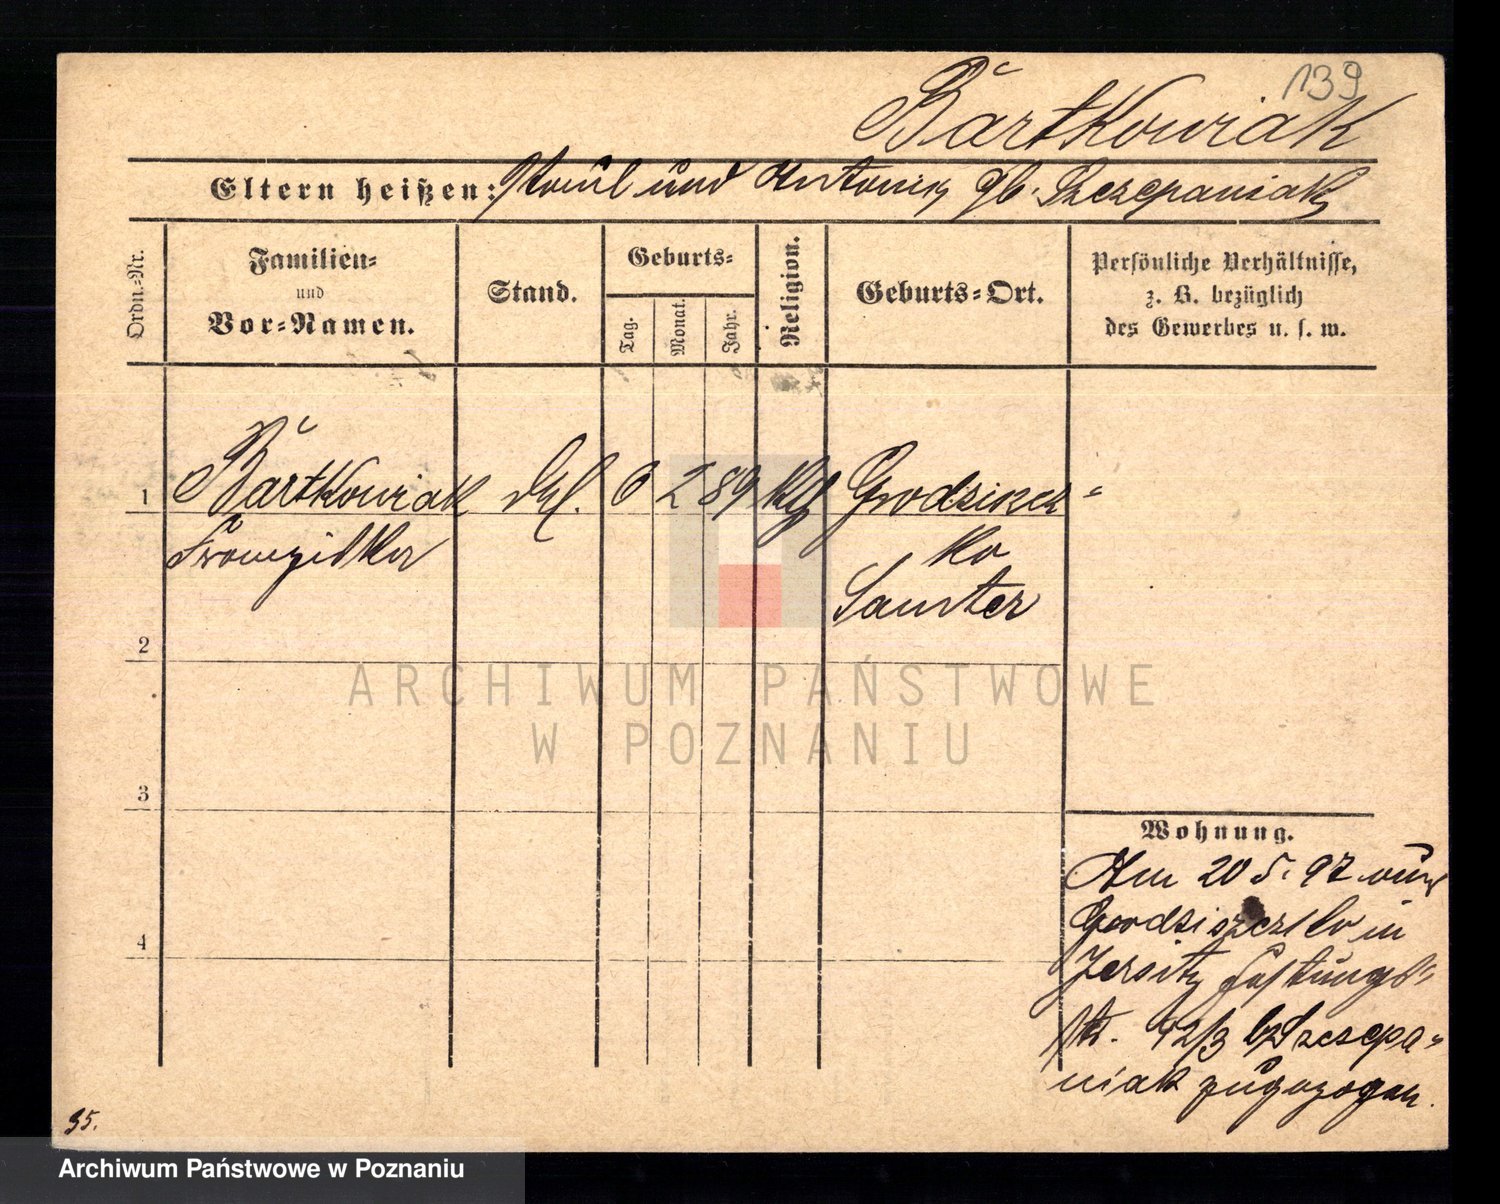 139
Bartkowiak
Eltern heißen: Paul und Antonie gb. Szczepaniak
Ordn.-Nr.
Familien-
und
Vor-Namen.
Stand.
Geburts-
Tag.
Monat.
Jahr.
Religion.
Geburts-Ort.
Persönliche Verhältnisse,
z. B. bezüglich
des Gewerbes u. s. w.
1 Bartkowiak 6 2 89 kth Grodziszcz-
Franziska ko
Samter
2
3
4
Wohnung.
Am 20 5. 97 von
Grodziszczko in
Jersitz Festungs-
str. 42/3 bei Szczepa-
niak zugezogen.
95.
ARCHIWUM PAŃSTWOWE
W POZNANIU
Archiwum Państwowe w Poznaniu